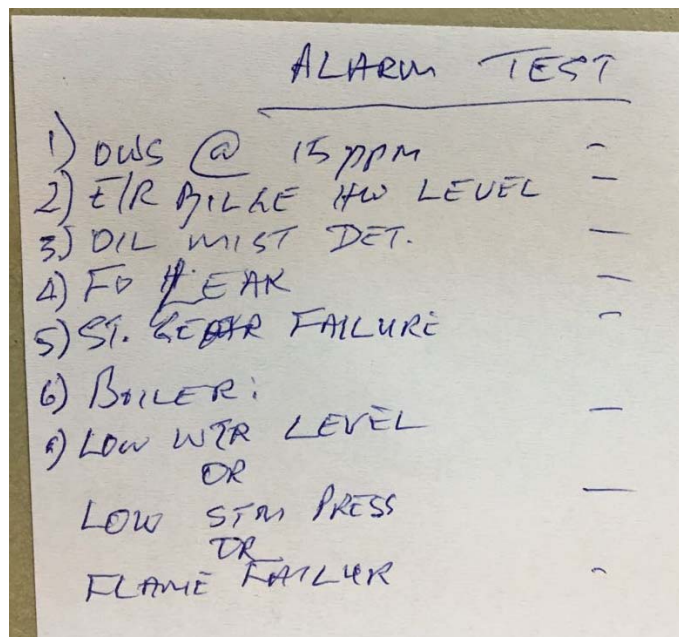 ALARM TEST
1) OWS @ 15 ppm -
2) E/R BILGE HW LEVEL -
3) OIL MIST DET. -
4) FO LEAK -
5) ST. GEAR FAILURE -
6) BOILER:
a) LOW WTR LEVEL -
OR
LOW STM PRESS -
OR
FLAME FAILUR -